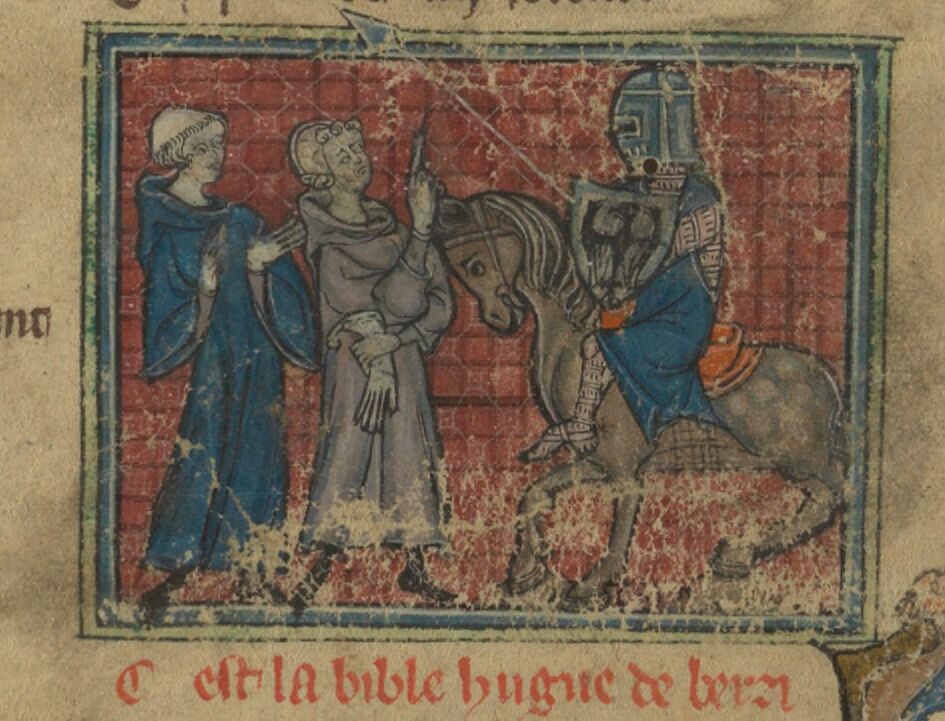 C est la bible hugue de berzi